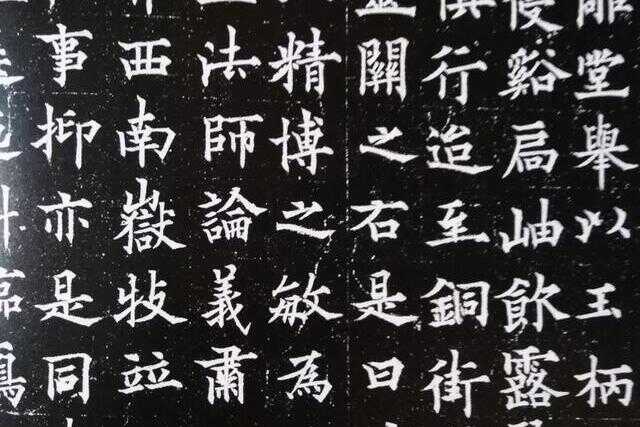 堂舉以玉柄
谿扃岫飲露
行迨至銅街
關之右是曰
精博之敏為
法師論義肅
西南嶽牧竝
事抑亦是同